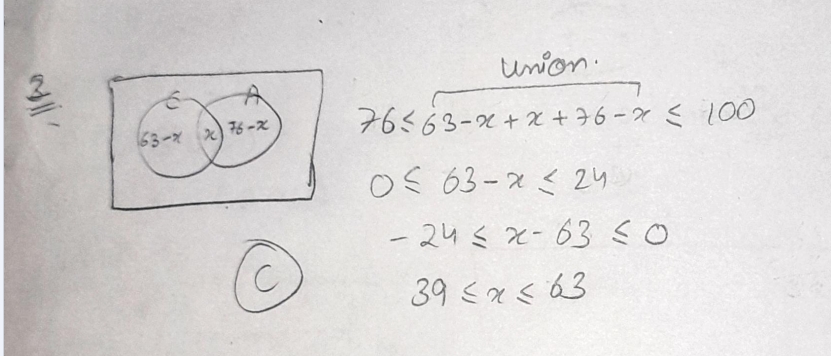 3
C A
63-x x 76-x
union.
76 ≤ 63-x + x + 76-x ≤ 100
0 ≤ 63-x ≤ 24
-24 ≤ x-63 ≤ 0
39 ≤ x ≤ 63
C